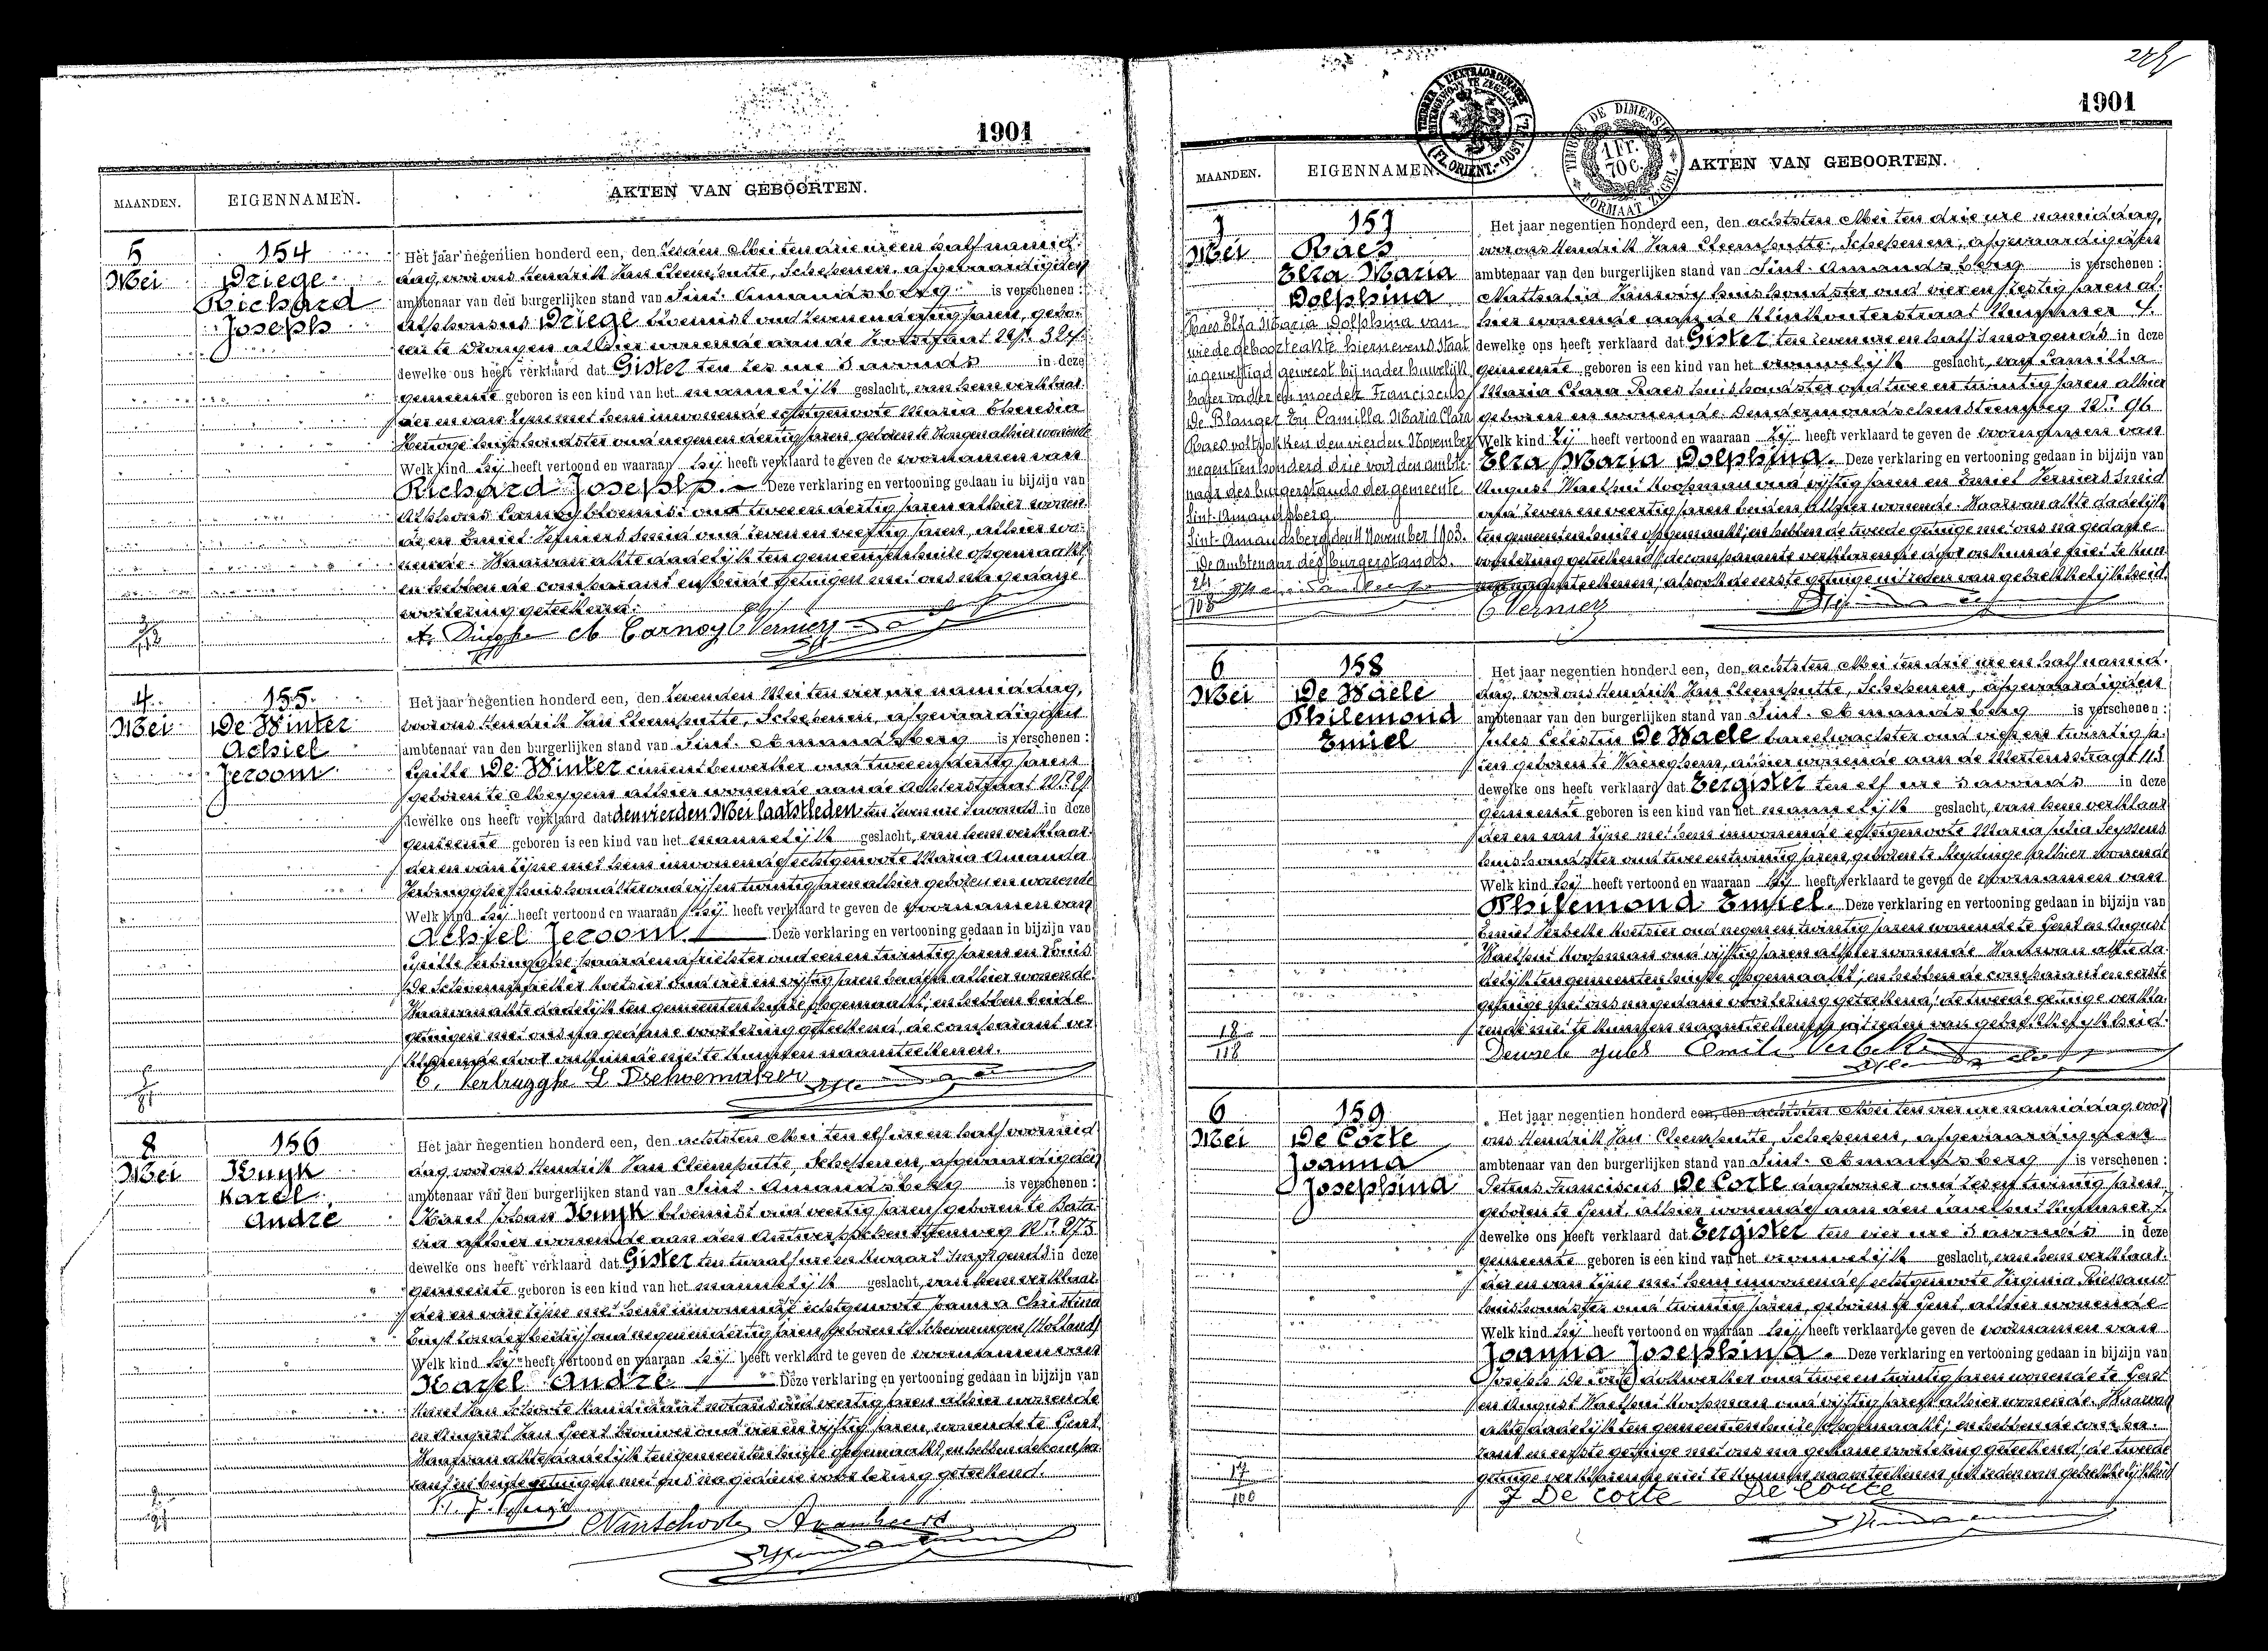 1901
MAANDEN.
EIGENNAMEN.
AKTEN VAN GEBOORTEN.
5
Mei
154
Driege
Richard
Joseph
Het jaar negentien honderd een, den zesden Mei ten drie ure en half namid-
dag, voor ons Hendrik Jan Cleemputte, Schepenen, afgevaardigden
ambtenaar van den burgerlijken stand van Sint-Amandsberg is verschenen:
Alphonsus Driege bloemist oud zevenendertig jaren, gebo-
ren te Drongen alhier wonende aan de
dewelke ons heeft verklaard dat Gister ten zes ure 's avonds in deze
gemeente geboren is een kind van het mannelijk geslacht, van hem verklaar-
der en van zijne met hem inwonende echtgenoote Maria Theresia
huishoudster oud negenendertig jaren geboren te alhier wonende
Welk kind hij heeft vertoond en waaraan hij heeft verklaard te geven de voornamen van
Richard Joseph. Deze verklaring en vertooning gedaan in bijzijn van
Alphons Carnoy bloemist oud tweeendertig jaren alhier wonen-
de, en Emiel Verniers smid oud zevenenveertig jaren, alhier wo-
nende. Waarvan akte dadelijk ten gemeentenhuize opgemaakt,
en hebben de comparant en beide getuigen met ons na gedane
voorlezing geteekend.
A. Carnoy Vernier
4
Mei
155
De Winter
Achiel
Jeroom
Het jaar negentien honderd een, den zevenden Mei ten vier ure namiddag,
voor ons Hendrik Jan Cleemputte, Schepenen, afgevaardigden
ambtenaar van den burgerlijken stand van Sint-Amandsberg is verschenen:
Cyrille De Winter cimentbewerker oud tweeendertig jaren
geboren te Meygem alhier wonende aan de Achterstraat
dewelke ons heeft verklaard dat den vierden Mei laatstleden ten zeven ure 's avonds in deze
gemeente geboren is een kind van het mannelijk geslacht, van hem verklaar-
der en van zijne met hem inwonende echtgenoote Maria Amanda
Verbrugghe huishoudster oud vijfentwintig jaren alhier geboren en wonende
Welk kind hij heeft vertoond en waaraan hij heeft verklaard te geven de voornamen van
Achiel Jeroom. Deze verklaring en vertooning gedaan in bijzijn van
Cyrille Verbrugghe oud eenentwintig jaren en Louis
De Schoenmaeker koetsier oud vierenvijftig jaren beiden alhier wonende.
Waarvan akte dadelijk ten gemeentenhuize opgemaakt, en hebben beide
getuigen met ons na gedane voorlezing geteekend, de comparant ver-
klarende door onkunde niet te kunnen naamteekenen.
C. Verbrugghe L Dschoemaker
8
Mei
156
Kuyk
Karel
André
Het jaar negentien honderd een, den achtsten Mei ten elf ure en half voormid-
dag voor ons Hendrik Jan Cleemputte, Schepenen, afgevaardigden
ambtenaar van den burgerlijken stand van Sint-Amandsberg is verschenen:
Karel Johan Kuyk bloemist oud veertig jaren, geboren te Bata-
via alhier wonende aan den Antwerpschen Steenweg Nr. 275
dewelke ons heeft verklaard dat Gister ten twaalf ure en kwaart 's morgends in deze
gemeente geboren is een kind van het mannelijk geslacht, van hem verklaar-
der en van zijne met hem inwonende echtgenoote Johanna Christina
zonder bedrijf oud negenendertig jaren, geboren te Scheveningen (Holland)
Welk kind hij heeft vertoond en waaraan hij heeft verklaard te geven de voornamen van
Karel André Deze verklaring en vertooning gedaan in bijzijn van
Karel Van Schoote Kandidaat notaris oud veertig jaren alhier wonende
en August Van Geert brouwer oud vierenvijftig jaren, wonende te Gent.
Waarvan akte dadelijk ten gemeentenhuize opgemaakt, en hebben de compa-
rant en beide getuigen met ons na gedane voorlezing geteekend.
CVanSchoote
1901
TIMBRE DE DIMENSION
1 Fr.
70 c.
FORMAAT ZEGEL
(FL. ORIENT.-OOST-VL.)
MAANDEN.
EIGENNAMEN.
AKTEN VAN GEBOORTEN.
7
Mei
157
Raes
Elza Maria
Dolphina
Raes Elza Maria Dolphina van
wie de geboorteakte hiernevens staat
is gewettigd geweest bij nader huwelijk
harer vader en moeder Franciscus
De Blanger en Camilla Maria Clara
Raes voltrokken den vierden November
negentien honderd drie voor den ambte-
naar des burgerstands der gemeente
Sint-Amandsberg
Sint-Amandsberg den 4 November 1903.
De ambtenaar des burgerstands.
Het jaar negentien honderd een, den achtsten Mei ten drie ure namiddag,
voor ons Hendrik Jan Cleemputte, Schepenen, afgevaardigden
ambtenaar van den burgerlijken stand van Sint-Amandsberg is verschenen:
Mathalia Janssoy huishoudster oud vierenzestig jaren al-
hier wonende aan de Klinkouterstraat Nummer 4.
dewelke ons heeft verklaard dat Gister ten zeven ure en half 's morgends in deze
gemeente geboren is een kind van het vrouwelijk geslacht, van Camilla
Maria Clara Raes huishoudster oud tweeentwintig jaren alhier
geboren en wonende Dendermondschensteenweg Nr. 96
Welk kind Zij heeft vertoond en waaraan Zij heeft verklaard te geven de voornamen van
Elza Maria Dolphina. Deze verklaring en vertooning gedaan in bijzijn van
August Koopman oud vijftig jaren en Emiel Verniers smid
oud zevenenveertig jaren beiden alhier wonende. Waarvan akte dadelijk
ten gemeentenhuize opgemaakt, en hebben de tweede getuige met ons na gedane
voorlezing geteekend, de comparante verklarende door onkunde niet te kun-
nen naamteekenen, alsook de eerste getuige uit reden van gebrekkelijkheid.
Vernier
6
Mei
158
De Waele
Philemond
Emiel
Het jaar negentien honderd een, den achtsten Mei ten drie ure en half namid-
dag, voor ons Hendrik Jan Cleemputte, Schepenen, afgevaardigden
ambtenaar van den burgerlijken stand van Sint-Amandsberg is verschenen:
Jules Celestin De Waele bareelwachter oud vierentwintig ja-
ren geboren te Waereghem, alhier wonende aan de Mertensstraat 113
dewelke ons heeft verklaard dat Eergister ten elf ure 's avonds in deze
gemeente geboren is een kind van het mannelijk geslacht, van hem verklaar-
der en van zijne met hem inwonende echtgenoote Maria Julia Seyssens
huishoudster oud tweeentwintig jaren, geboren te Sleydinge alhier wonende
Welk kind hij heeft vertoond en waaraan hij heeft verklaard te geven de voornamen van
Philemond Emiel. Deze verklaring en vertooning gedaan in bijzijn van
Emiel Verbeke koetsier oud negenentwintig jaren wonende te Gent en August
Koopman oud vijftig jaren alhier wonende. Waarvan akte da-
delijk ten gemeentenhuize opgemaakt, en hebben de comparant en eerste
getuige met ons na gedane voorlezing geteekend, de tweede getuige verkla-
rende niet te kunnen naamteekenen uit reden van gebrekkelijkheid.
18
118
Dewaele Jules Emile Verbeke
6
Mei
159
De Corte
Joanna
Josephina
Het jaar negentien honderd een, den achtsten Mei ten vier ure namiddag, voor
ons Hendrik Jan Cleemputte, Schepenen, afgevaardigden
ambtenaar van den burgerlijken stand van Sint-Amandsberg is verschenen:
Petrus Franciscus De Corte daglooner oud zesentwintig jaren
geboren te Gent, alhier wonende aan den Nummer 7.
dewelke ons heeft verklaard dat Eergister ten vier ure 's avonds in deze
gemeente geboren is een kind van het vrouwelijk geslacht, van hem verklaar-
der en van zijne met hem inwonende echtgenoote Virginia
huishoudster oud twintig jaren, geboren te Gent, alhier wonende
Welk kind hij heeft vertoond en waaraan hij heeft verklaard te geven de voornamen van
Joanna Josephina. Deze verklaring en vertooning gedaan in bijzijn van
Joseph De Corte dokwerker oud tweeentwintig jaren wonende te Gent
en August Koopman oud vijftig jaren alhier wonende. Waarvan
akte dadelijk ten gemeentenhuize opgemaakt, en hebben de compa-
rant en eerste getuige met ons na gedane voorlezing geteekend, de tweede
getuige verklarende niet te kunnen naamteekenen uit reden van gebrekkelijkheid
17
100
J De Corte De Corte